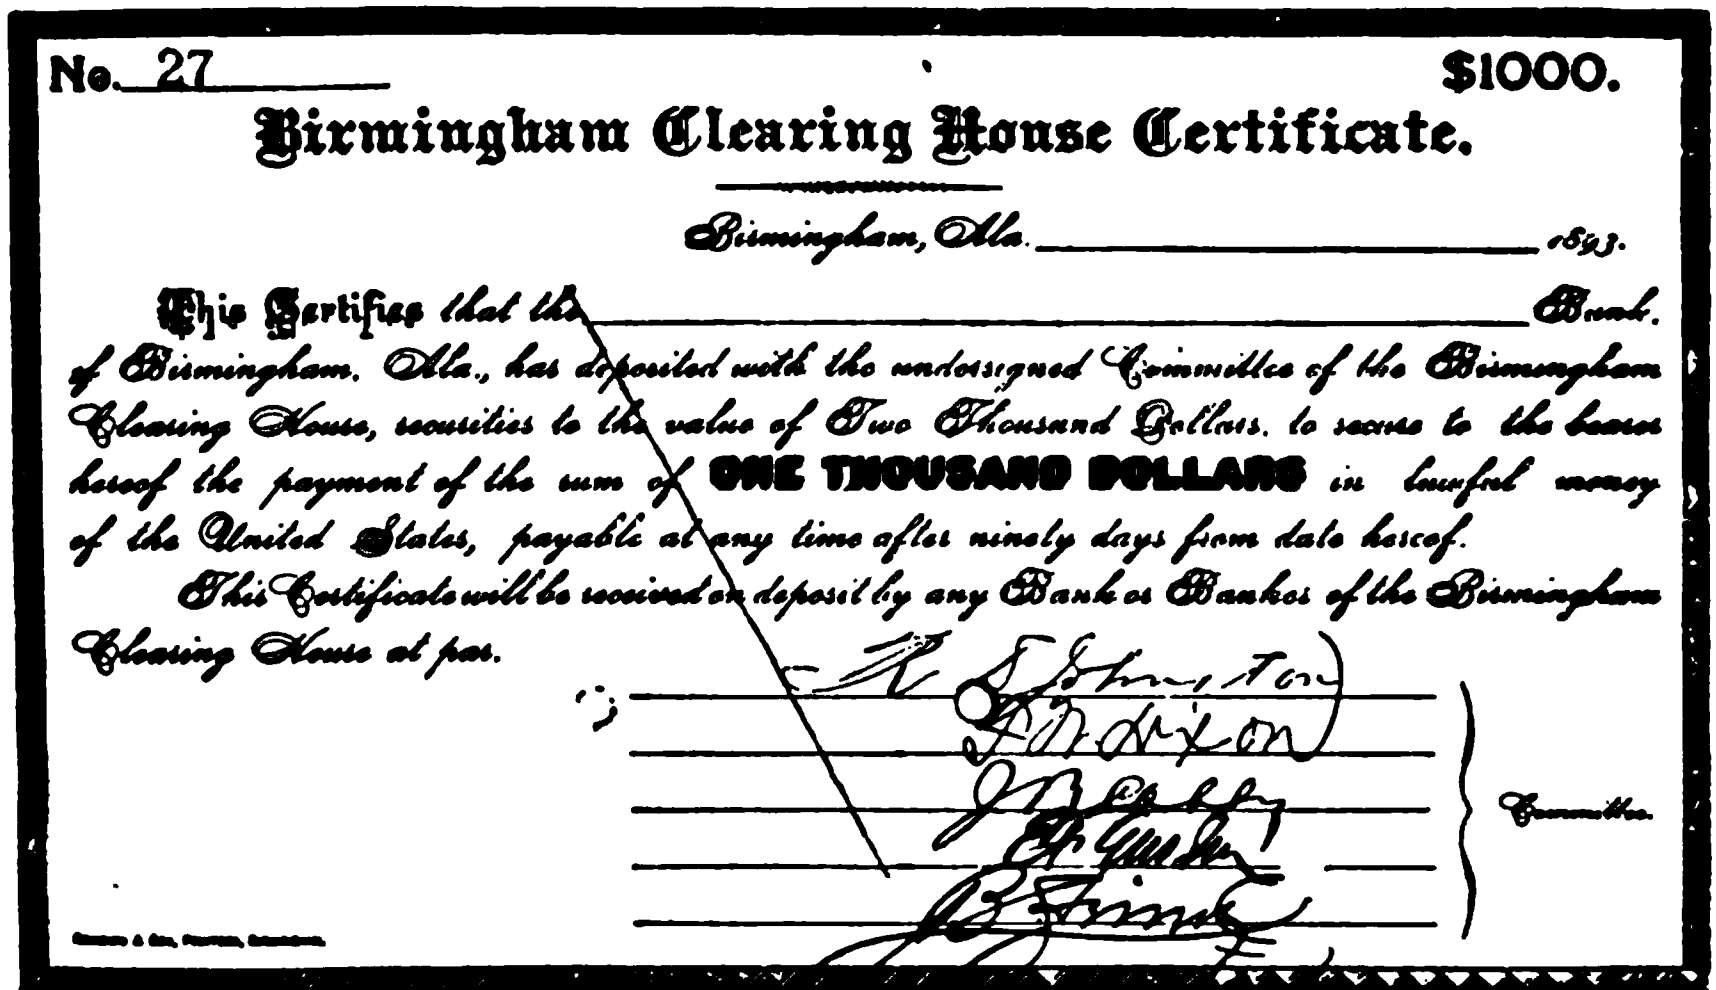 No. 27 $1000.
Birmingham Clearing House Certificate.
Birmingham, Ala. 1893.
This Certifies that the Bank.
of Birmingham, Ala., has deposited with the undersigned Committee of the Birmingham
Clearing House, securities to the value of Two Thousand Dollars, to secure to the bearer
hereof the payment of the sum of ONE THOUSAND DOLLARS in lawful money
of the United States, payable at any time after ninety days from date hereof.
This Certificate will be received on deposit by any Bank or Banker of the Birmingham
Clearing House at par.
Johnston
Dixon
J B
Committee.